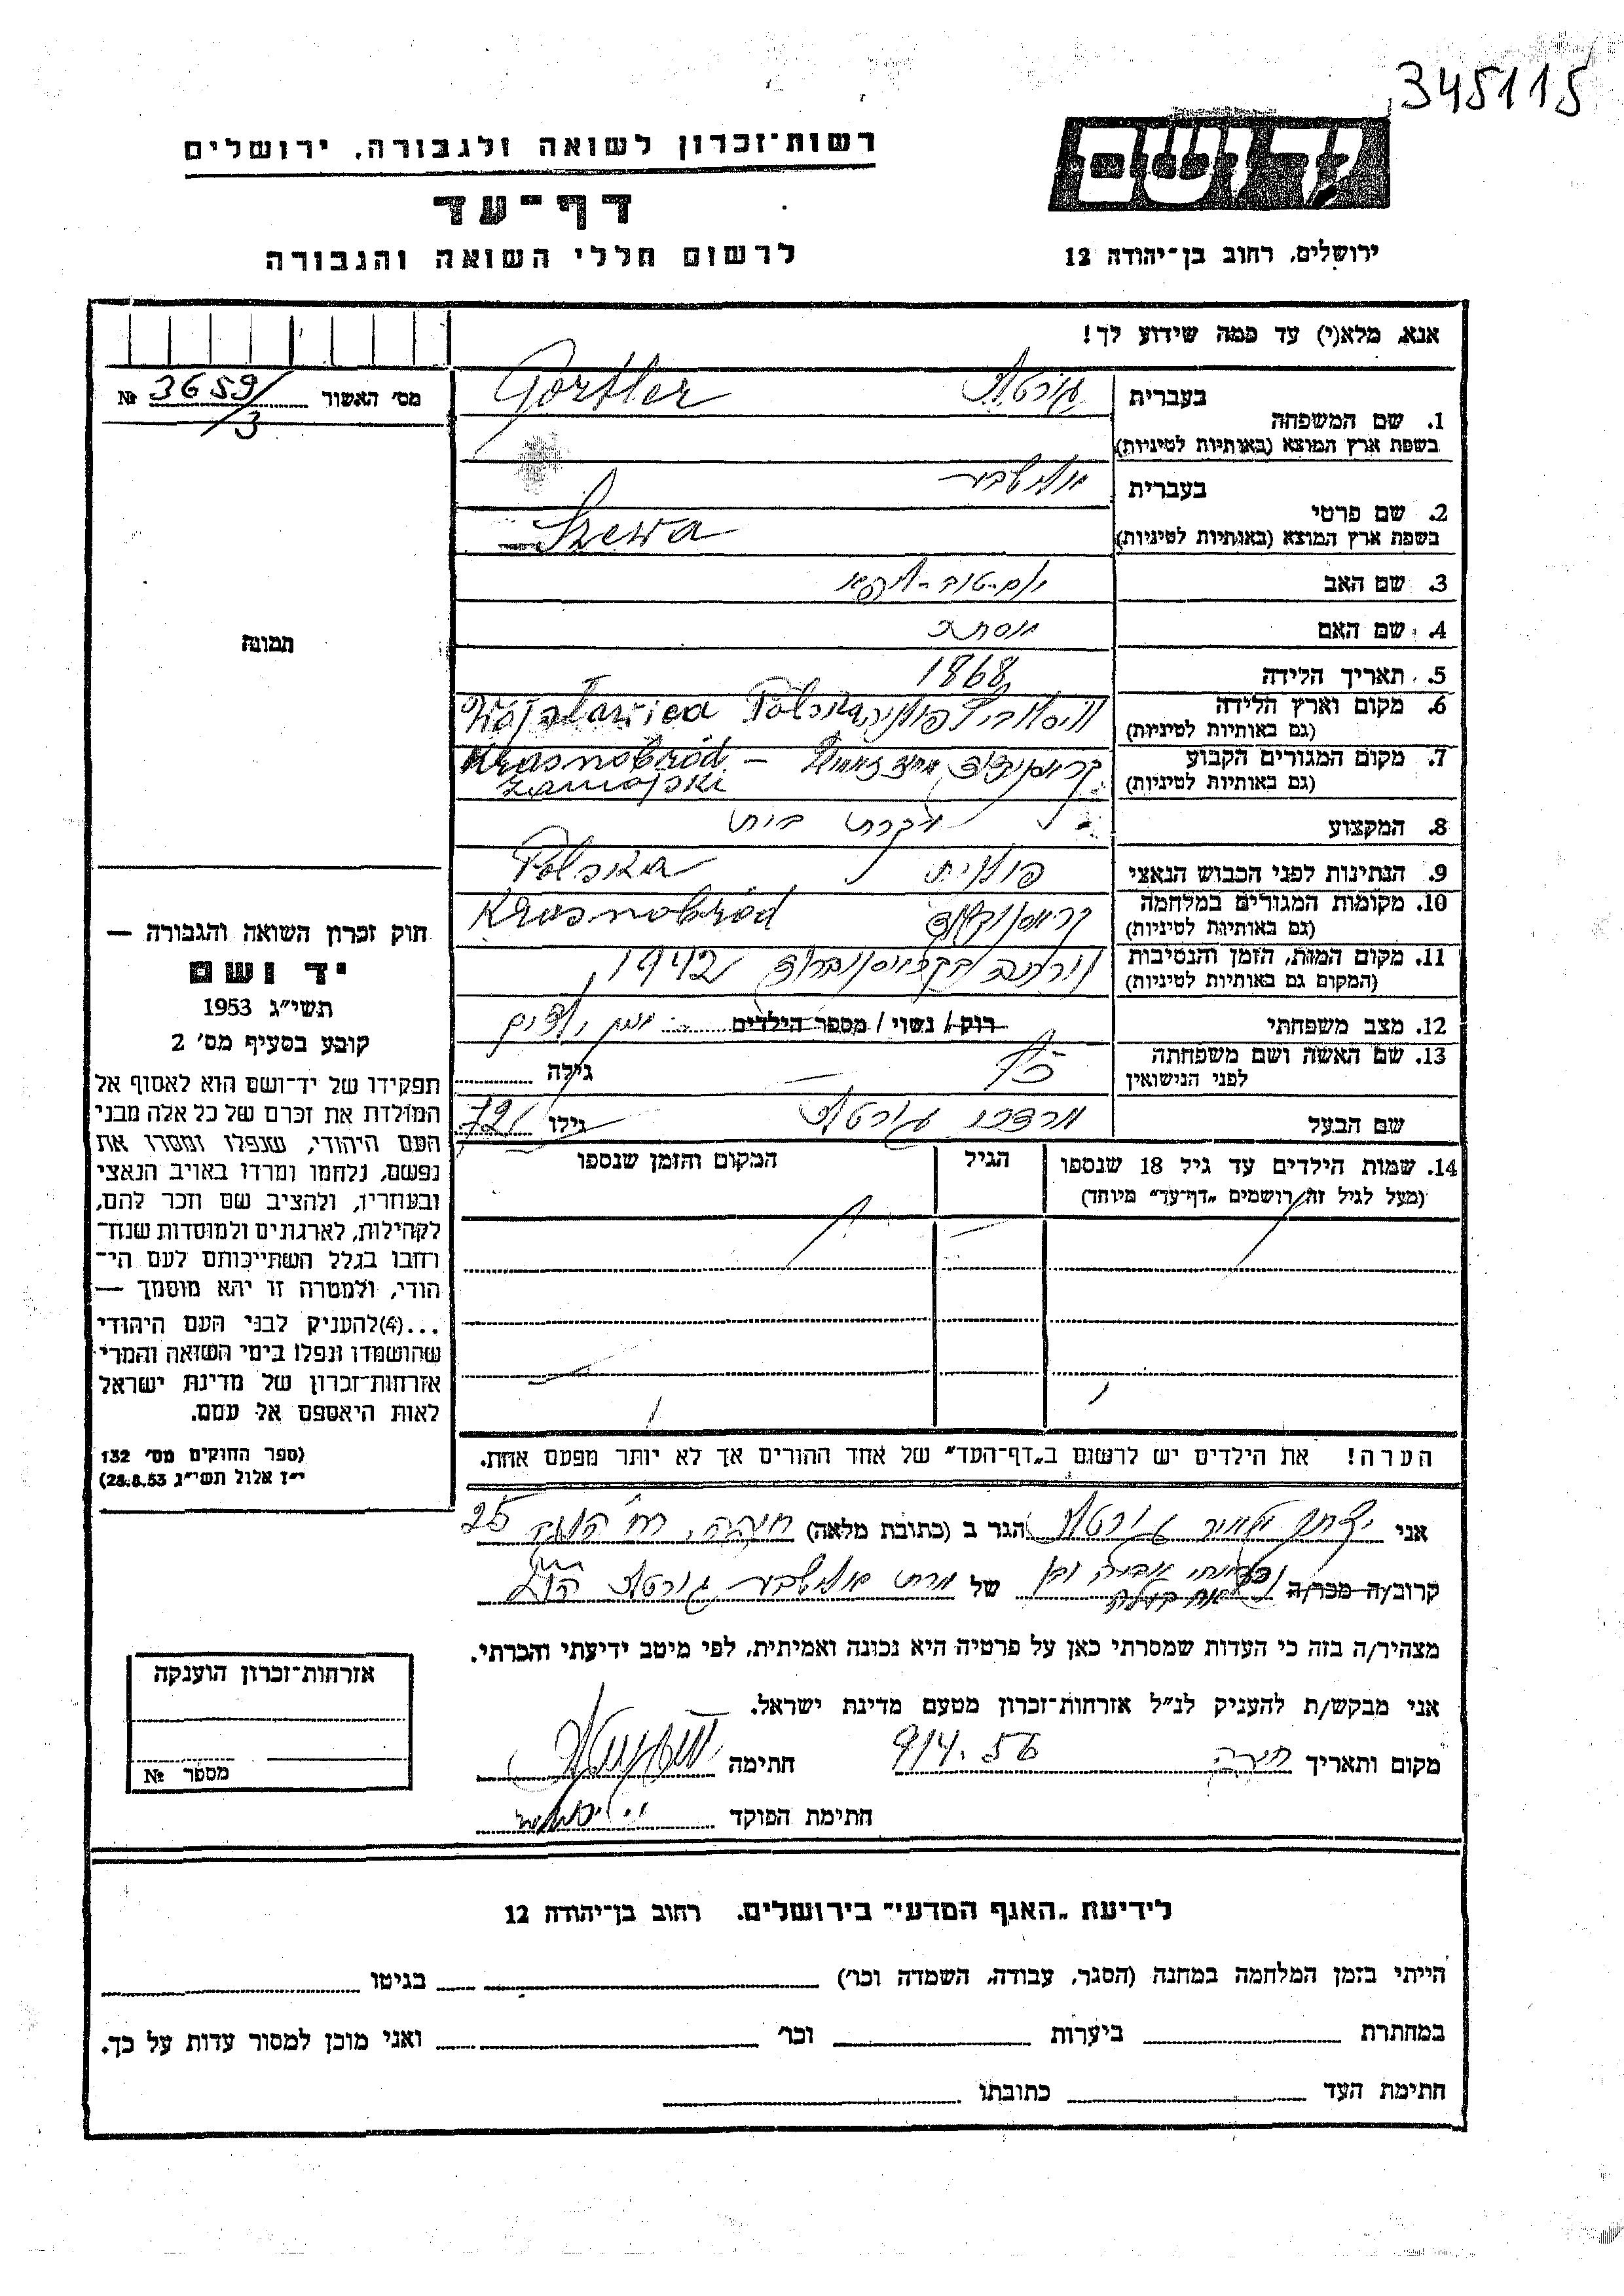 345115
יד ושם
רשות־זכרון לשואה ולגבורה, ירושלים
דף־עד
לרשום חללי השואה והגבורה
ירושלים, רחוב בן־יהודה 12
אנא, מלא(י) עד כמה שידוע לך!
מס׳ האשור 3659/3 №
תמונה
1. שם המשפחה
בעברית גורטלר
בשפת ארץ המוצא (באותיות לטיניות) Gortler
2. שם פרטי
בעברית אלישבע
בשפת ארץ המוצא (באותיות לטיניות) Szewa
3. שם האב יום-טוב-
4. שם האם
5. תאריך הלידה 1868
6. מקום וארץ הלידה
(גם באותיות לטיניות) פולניה Wojslawica Polska
7. מקום המגורים הקבוע
(גם באותיות לטיניות) Krasnobród –
Zamojski
8. המקצוע עקרת בית
9. הנתינות לפני הכבוש הנאצי פולנית Polska
10. מקומות המגורים במלחמה
(גם באותיות לטיניות) קראסנוברוד Krasnobród
11. מקום המות, הזמן והנסיבות
(המקום גם באותיות לטיניות) 1942
12. מצב משפחתי רווק / נשוי / מספר הילדים ילדים
13. שם האשה ושם משפחתה
לפני הנישואין
גילה
שם הבעל מרדכי גורטלר גילו 72
14. שמות הילדים עד גיל 18 שנספו הגיל המקום והזמן שנספו
(מעל לגיל זה רושמים „דף־עד״ מיוחד)
הערה! את הילדים יש לרשום ב„דף־העד״ של אחד ההורים אך לא יותר מפעם אחת.
חוק זכרון השואה והגבורה —
יד ושם
תשי״ג 1953
קובע בסעיף מס׳ 2
תפקידו של יד־ושם הוא לאסוף אל
המולדת את זכרם של כל אלה מבני
העם היהודי, שנפלו ומסרו את
נפשם, נלחמו ומרדו באויב הנאצי
ובעוזריו, ולהציב שם וזכר להם,
לקהילות, לארגונים ולמוסדות שנח־
רבו בגלל השתייכותם לעם הי־
הודי, ולמטרה זו יהא מוסמך —
...(4)להעניק לבני העם היהודי
שהושמדו ונפלו בימי השואה והמרי
אזרחות־זכרון של מדינת ישראל
לאות היאספם אל עמם.
(ספר החוקים מס׳ 132
י״ז אלול תשי״ג 28.8.53)
אני גורטלר הגר ב (כתובת מלאה) חיפה, רח׳ 25
קרוב/ה מכר/ה של אלישבע גורטלר
מצהיר/ה בזה כי העדות שמסרתי כאן על פרטיה היא נכונה ואמיתית, לפי מיטב ידיעתי והכרתי.
אני מבקש/ת להעניק לנ״ל אזרחות־זכרון מטעם מדינת ישראל.
מקום ותאריך חיפה 9/4.56 חתימה
חתימת הפוקד
אזרחות־זכרון הוענקה
מספר №
לידיעת „האגף המדעי״ בירושלים, רחוב בן־יהודה 12
הייתי בזמן המלחמה במחנה (הסגר, עבודה, השמדה וכו׳) בגיטו
במחתרת ביערות וכו׳ ואני מוכן למסור עדות על כך.
חתימת העד כתובתו